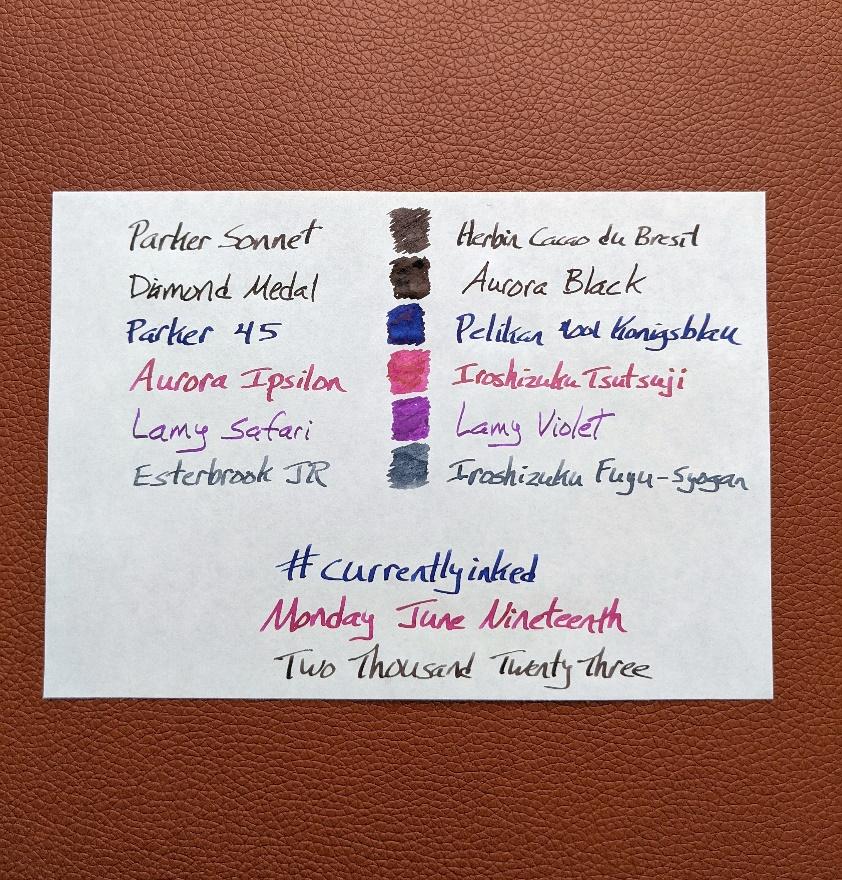 Parker Sonnet Herbin Cacao du Bresil
Diamond Medal Aurora Black
Parker 45 Pelikan 4001 Konigsblau
Aurora Ipsilon Iroshizuku Tsutsuji
Lamy Safari Lamy Violet
Esterbrook JR Iroshizuku Fuyu-Syogan
#currentlyinked
Monday June Nineteenth
Two Thousand Twenty Three